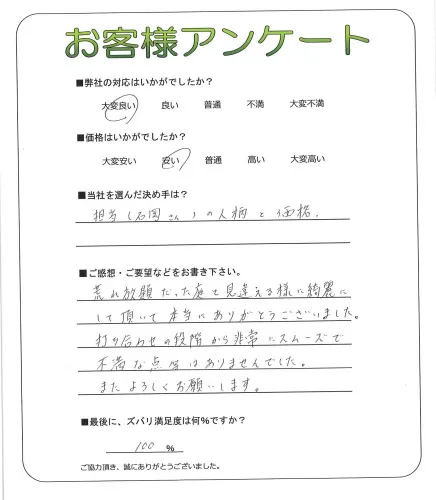 お客様アンケート
■弊社の対応はいかがでしたか？
大変良い 良い 普通 不満 大変不満
■価格はいかがでしたか？
大変安い 安い 普通 高い 大変高い
■当社を選んだ決め手は？
担当（石国さん）の人柄と価格．
■ご感想・ご要望などをお書き下さい。
荒れ放題だった庭を見違える様に綺麗に
して頂いて本当にありがとうございました。
打ち合わせの段階から非常にスムーズで
不満な点等はありませんでした。
またよろしくお願いします。
■最後に、ズバリ満足度は何%ですか？
100 %
ご協力頂き、誠にありがとうございました。